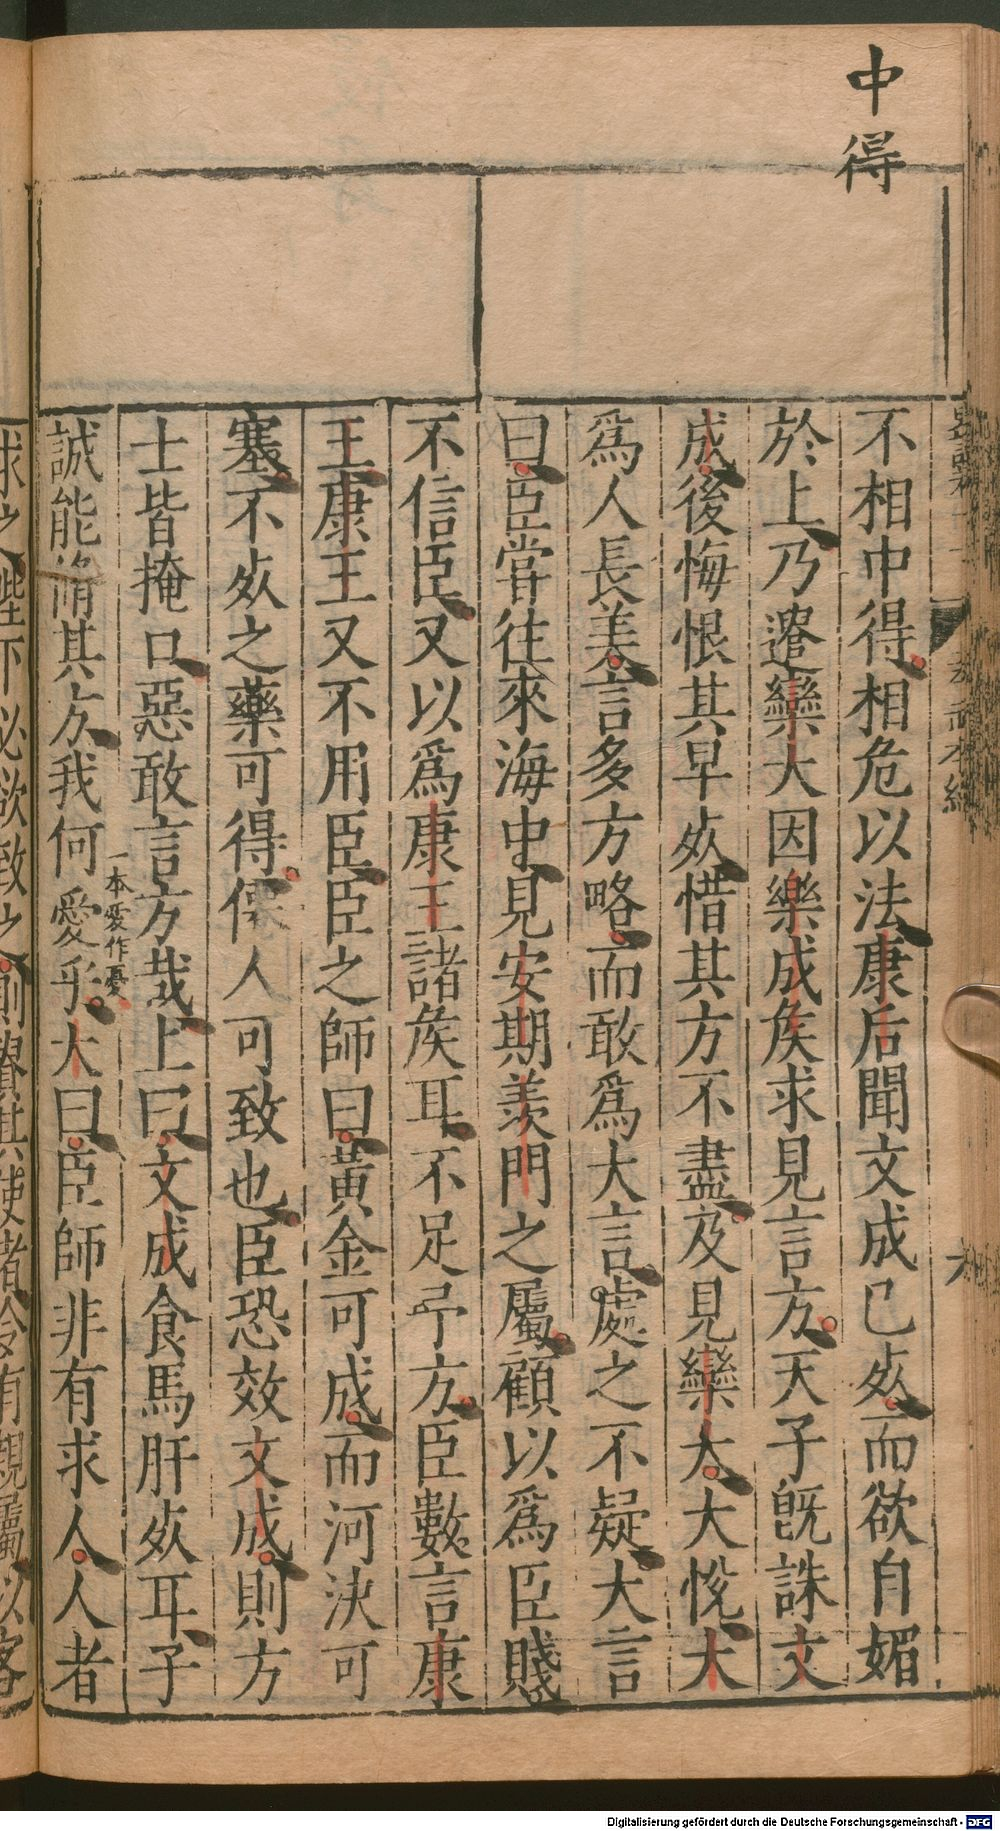 中得
不相中得相危以法康后聞文成已死而欲自媚
於上乃遣欒大因樂成侯求見言方天子既誅文
成後悔恨其早死惜其方不盡及見欒大大悅大
爲人長美言多方略而敢爲大言處之不疑大言
曰臣嘗往來海中見安期羨門之屬顧以爲臣賤
不信臣又以爲康王諸侯耳不足予方臣數言康
王康王又不用臣臣之師曰黃金可成而河決可
塞不死之藥可得僊人可致也臣恐效文成則方
士皆掩口惡敢言方哉上曰文成食馬肝死耳子
一本愛作憂
誠能脩其方我何愛乎大曰臣師非有求人人者
求之陛下必欲致之則貴其使者令有親屬以客
Digitalisierung gefördert durch die Deutsche Forschungsgemeinschaft - DFG